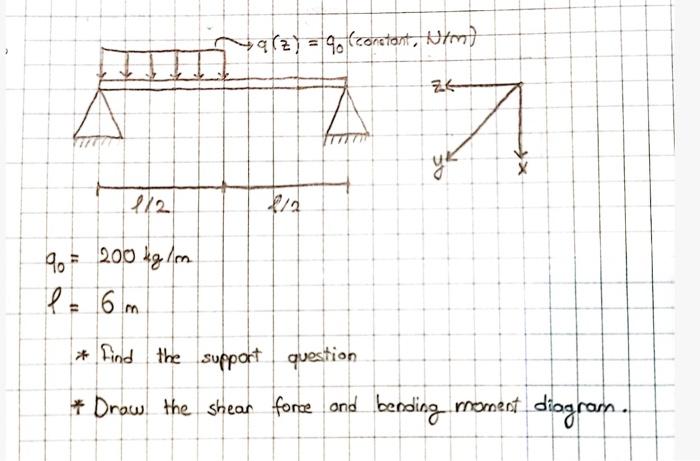 q(z) = q₀ (constant, N/m)
z
y
x
l/2
l/2
q₀ = 200 kg/m
l = 6 m
* find the support question
* Draw the shear force and bending moment diagram.